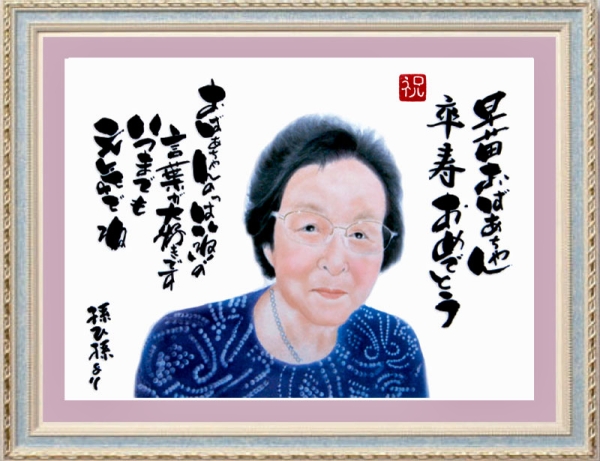 早苗おばあちゃん
卒寿おめでとう
祝
おばあちゃんの「はいね」の
言葉が大好きです
いつまでも
元気でね
孫ひ孫より